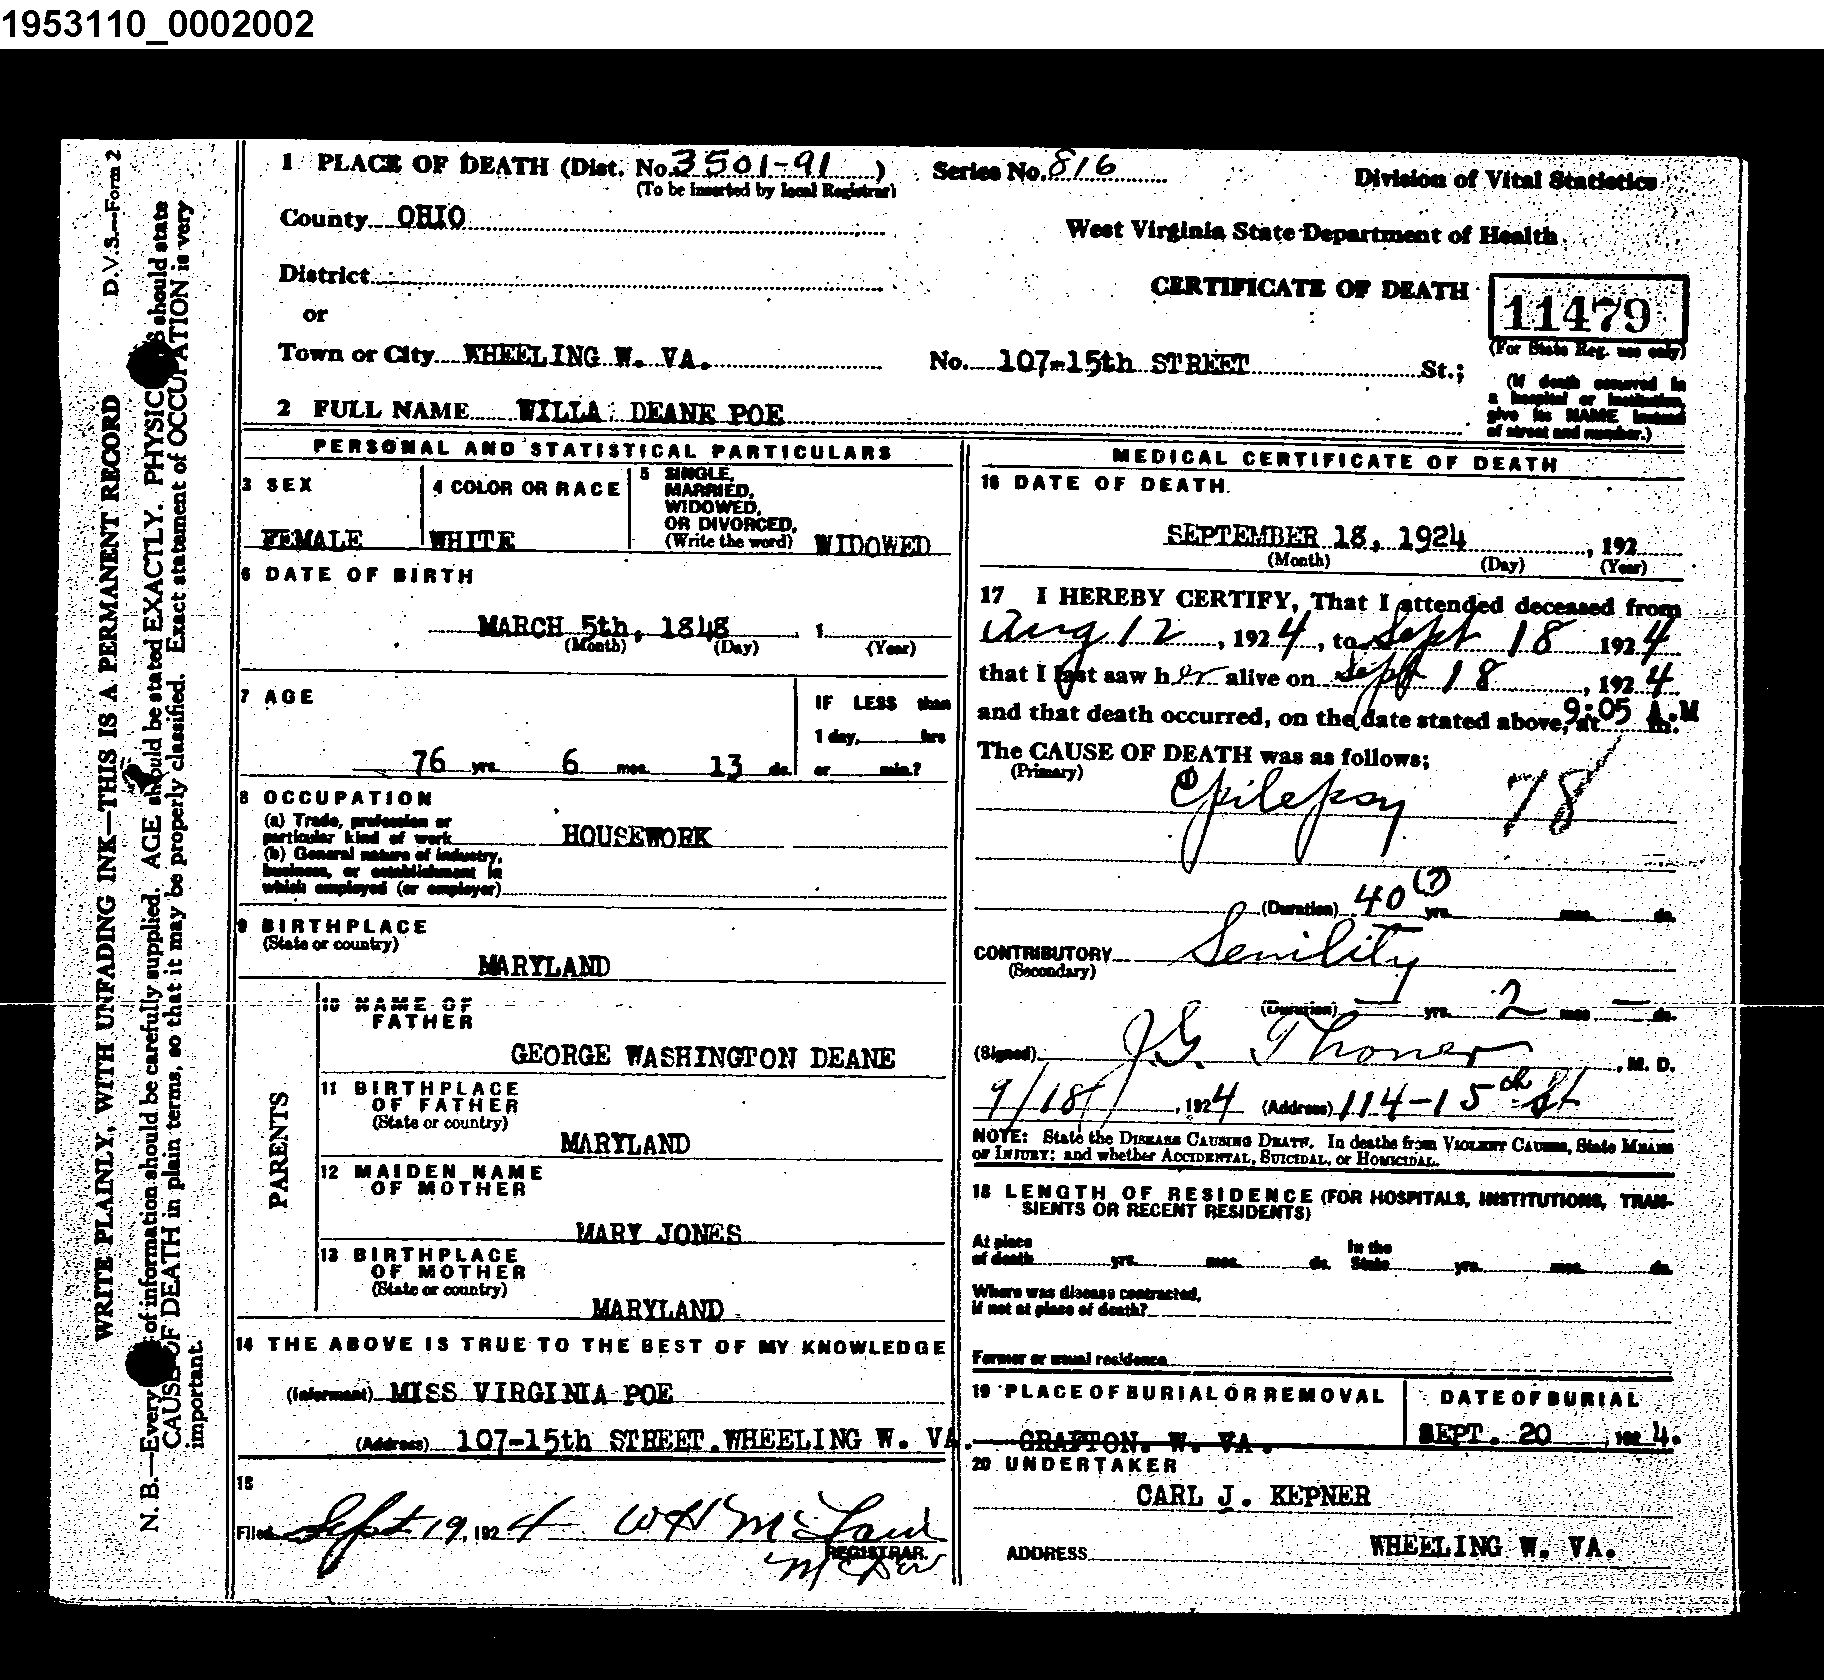 1953110_0002002
1 PLACE OF DEATH (Dist. No. 3501-91 ) Series No. 816 Division of Vital Statistics
(To be inserted by local Registrar)
County OHIO
West Virginia State Department of Health
District
CERTIFICATE OF DEATH
11479
or
(For State Reg. use only)
Town or City WHEELING W. VA. No. 107-15th STREET St.;
(If death occurred in
a hospital or institution,
give its NAME instead
of street and number.)
2 FULL NAME WILLA DEANE POE
PERSONAL AND STATISTICAL PARTICULARS
3 SEX
FEMALE
4 COLOR OR RACE
WHITE
5 SINGLE,
MARRIED,
WIDOWED,
OR DIVORCED,
(Write the word) WIDOWED
6 DATE OF BIRTH
MARCH 5th, 1848 , 1
(Month) (Day) (Year)
7 AGE
76 yrs. 6 mos. 13 ds.
IF LESS than
1 day, hrs
or min.?
8 OCCUPATION
(a) Trade, profession or
particular kind of work HOUSEWORK
(b) General nature of industry,
business, or establishment in
which employed (or employer)
9 BIRTHPLACE
(State or country)
MARYLAND
PARENTS
10 NAME OF
FATHER
GEORGE WASHINGTON DEANE
11 BIRTHPLACE
OF FATHER
(State or country)
MARYLAND
12 MAIDEN NAME
OF MOTHER
MARY JONES
13 BIRTHPLACE
OF MOTHER
(State or country)
MARYLAND
14 THE ABOVE IS TRUE TO THE BEST OF MY KNOWLEDGE
(Informant) MISS VIRGINIA POE
(Address) 107-15th STREET.WHEELING W. VA.
15
Filed Sept 19, 1924 W H McLain
REGISTRAR.
MEDICAL CERTIFICATE OF DEATH
16 DATE OF DEATH
SEPTEMBER 18, 1924 , 192
(Month) (Day) (Year)
17 I HEREBY CERTIFY, That I attended deceased from
Aug 12 , 1924, to Sept 18 1924
that I last saw her alive on Sept 18 , 1924
and that death occurred, on the date stated above, at 9:05 A.M m.
The CAUSE OF DEATH was as follows;
(Primary)
Epilepsy 78
(Duration) 40 (?) yrs. mos. ds.
CONTRIBUTORY Senility
(Secondary)
(Duration) — yrs. 2 mos — ds.
(Signed) J.G. Thoner , M. D.
9/18/ , 1924 (Address) 114-15th St
NOTE: State the DISEASE CAUSING DEATH. In deaths from VIOLENT CAUSES, State MEANS
OF INJURY: and whether ACCIDENTAL, SUICIDAL, or HOMICIDAL.
18 LENGTH OF RESIDENCE (FOR HOSPITALS, INSTITUTIONS, TRAN-
SIENTS OR RECENT RESIDENTS)
At place
of death yrs. mos. ds.
In the
State yrs. mos. ds.
Where was disease contracted,
if not at place of death?
Former or usual residence
19 PLACE OF BURIAL OR REMOVAL
GRAFTON. W. VA.
DATE OF BURIAL
SEPT. 20 , 1924.
20 UNDERTAKER
CARL J. KEPNER
ADDRESS WHEELING W. VA.
D.V.S.—Form 2
WRITE PLAINLY, WITH UNFADING INK—THIS IS A PERMANENT RECORD
N. B.—Every of information should be carefully supplied. AGE should be stated EXACTLY. PHYSIC S should state
CAUSE OF DEATH in plain terms, so that it may be properly classified. Exact statement of OCCUPATION is very
important.